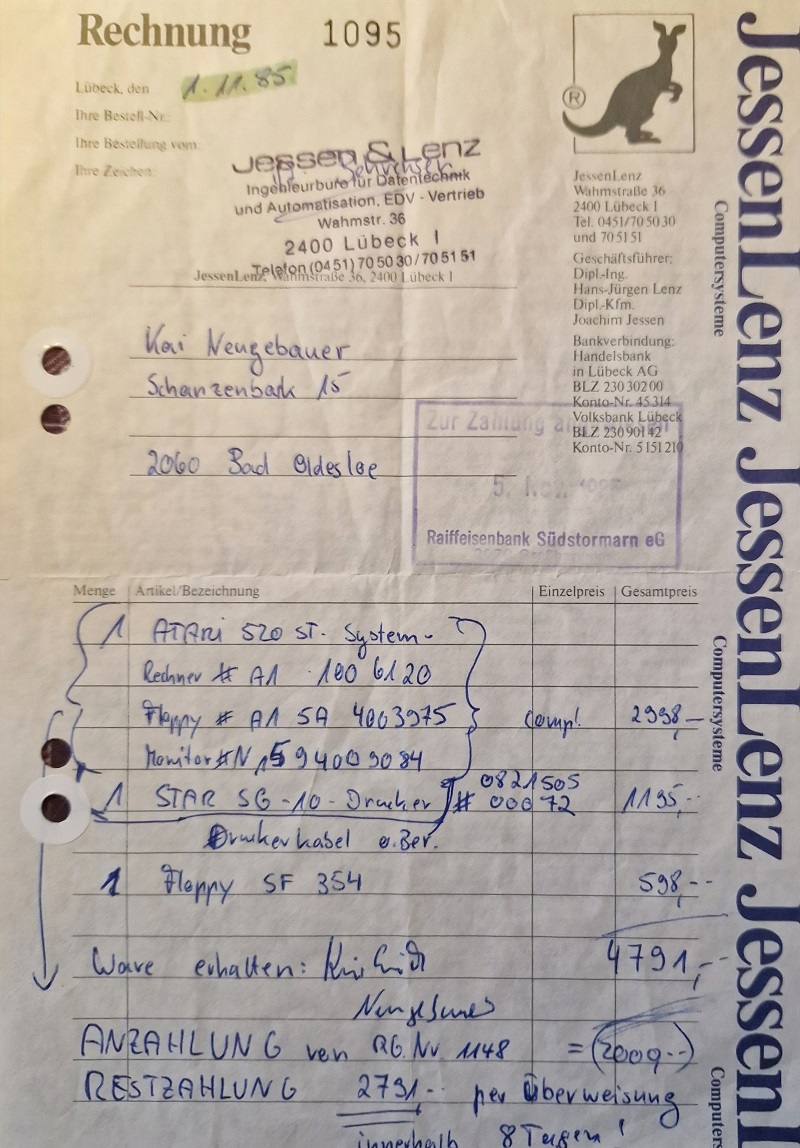 Rechnung 1095
Lübeck, den 1.11.85
Ihre Bestell-Nr.:
Ihre Bestellung vom:
Ihre Zeichen:
Jessen & Lenz
Ingenieurbüro für Datentechnik
und Automatisation, EDV - Vertrieb
Wahmstr. 36
2400 Lübeck 1
Telefon (0451) 70 50 30 / 70 51 51
JessenLenz, Wahmstraße 36, 2400 Lübeck 1
®
JessenLenz
Wahmstraße 36
2400 Lübeck 1
Tel. 0451/70 50 30
und 70 51 51
Geschäftsführer:
Dipl.-Ing.
Hans-Jürgen Lenz
Dipl.-Kfm.
Joachim Jessen
Bankverbindung:
Handelsbank
in Lübeck AG
BLZ 230 302 00
Konto-Nr. 45 314
Volksbank Lübeck
BLZ 230 901 42
Konto-Nr. 5 151 210
Kai Neugebauer
Schanzenbark 15
2060 Bad Oldesloe
Zur Zahlung
5. Nov.
Raiffeisenbank Südstormarn eG
Menge Artikel/Bezeichnung Einzelpreis Gesamtpreis
1 ATARI 520 ST. System-
Rechner # A1 100 6120
Floppy # A1 5A 4003975 compl. 2998,-
Monitor # N 15 94009084
1 STAR SG-10-Drucker # 0821505 00072 1195,--
Druckerkabel o.Ber.
1 Floppy SF 354 598,--
Ware erhalten: 4791,--
Neugebauer
ANZAHLUNG von RG. Nr. 1148 = (2000,--)
RESTZAHLUNG 2791,-- per Überweisung
innerhalb 8 Tagen!
JessenLenz JessenLenz Jessen
Computersysteme
Computersysteme
Computer